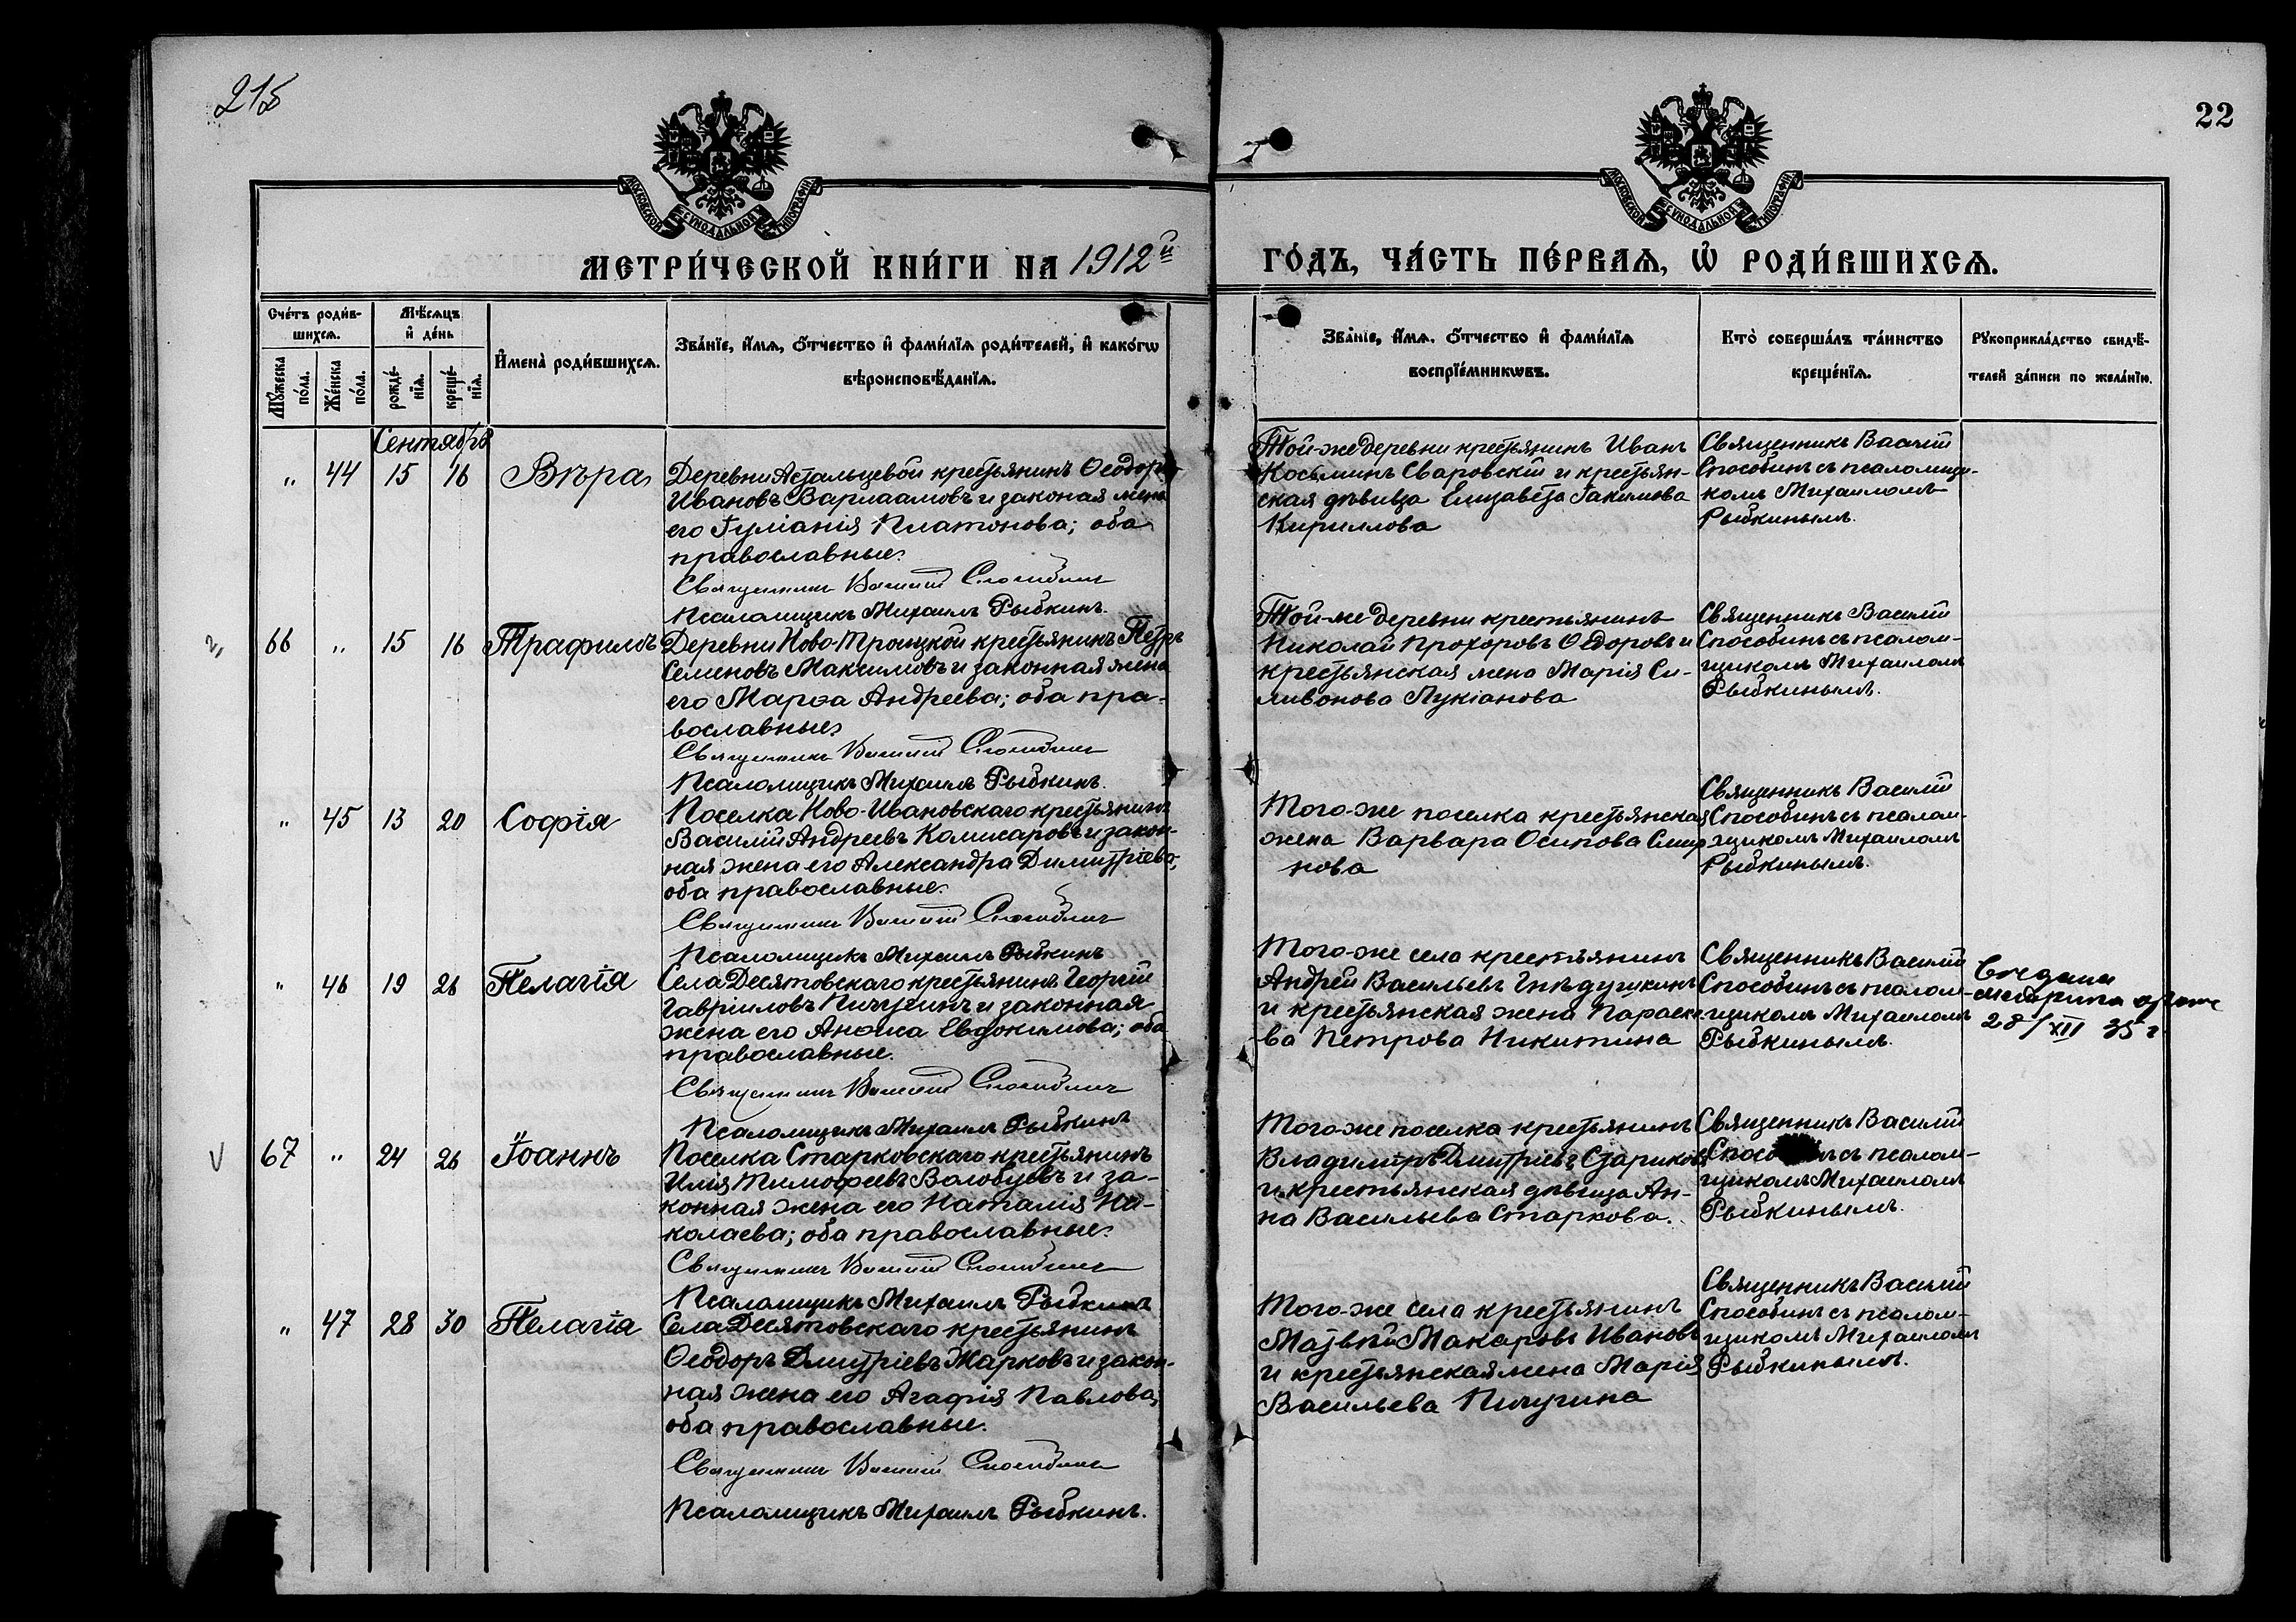 215
22
МОСКОВСКОЙ СѴНОДАЛЬНОЙ ТИПОГРАФІИ
МОСКОВСКОЙ СѴНОДАЛЬНОЙ ТИПОГРАФІИ
МЕТРИ́ЧЕСКОЙ КНИ́ГИ НА 1912й
ГО́ДЪ, ЧА́СТЬ ПЕ́РВАѦ, Ѡ РОДИ́ВШИХСѦ.
Сче́тъ роди́в-
шихсѧ.
Мꙋ́жеска по́ла.
Же́нска по́ла.
Мѣ́сѧцъ
и де́нь
рожде́-
нїѧ.
креще́-
нїѧ.
Имена̀ роди́вшихсѧ.
Зва́нїе, и́мѧ, о́тчество и фами́лїѧ роди́телей, и како́гѡ
вѣроисповѣ́данїѧ.
Зва́нїе, и́мѧ, о́тчество и фами́лїѧ
воспрїе́мникѡвъ.
Кто̀ соверша́лъ та́инство
креще́нїѧ.
Рꙋкоприкла́дство свидѣ́-
телей за́писи по жела́нїю.
Сентябрь
" 44 15 16 Вѣра
Деревни Астальцевой крестьянинъ Ѳеодоръ
Ивановъ Варлаамовъ и законая жена
его Іуліанія Платонова; оба
православные.
Священникъ Василій Способинъ
Псаломщикъ Михаилъ Рыбкинъ.
Той-же деревни крестьянинъ Иванъ
Косьминъ Сваровскій и крестьян-
ская дѣвица Елизавета Іакимова
Кириллова
Священникъ Василій
Способинъ съ псаломщи-
комъ Михаиломъ
Рыбкинымъ.
66 " 15 16 Трафилъ
Деревни Ново-Троицкой крестьянинъ Петръ
Семеновъ Максимовъ и законная жена
его Марѳа Андреева; оба пра-
вославные
Священникъ Василій Способинъ
Псаломщикъ Михаилъ Рыбкинъ.
Той-же деревни крестьянинъ
Николай Прохоровъ Ѳедоровъ и
крестьянская жена Марія Си-
ливонова Лукіанова
Священникъ Василій
Способинъ съ псалом-
щикомъ Михаиломъ
Рыбкинымъ.
" 45 13 20 Софія
Поселка Ново-Ивановскаго крестьянинъ
Василій Андреевъ Комисаровъ и закон-
ная жена его Александра Димитріева;
оба православные.
Священникъ Василій Способинъ
Псаломщикъ Михаилъ Рыбкинъ
Того-же поселка крестьянская
жена Варвара Осипова Смир
нова
Священникъ Василій
Способинъ съ псалом-
щикомъ Михаиломъ
Рыбкинымъ.
" 46 19 26 Пелагія
Села Десятовскаго крестьянинъ Георгій
Гавріиловъ Пичугинъ и законная
жена его Анѳиса Евдокимова; оба
православные.
Священникъ Василій Способинъ
Псаломщикъ Михаилъ Рыбкинъ
Того-же села крестьянинъ
Андрей Васильевъ Гнѣдушкинъ
и крестьянская жена Параске
ва Петрова Никитина
Священникъ Василій
Способинъ съ псалом-
щикомъ Михаиломъ
Рыбкинымъ.
28/XII 35 г
V 67 " 24 26 Іоаннъ
Поселка Старковскаго крестьянинъ
Илія Тимоѳеевъ Волобуевъ и за-
конная жена его Наталія Ни-
колаева; оба православные.
Священникъ Василій Способинъ
Псаломщикъ Михаилъ Рыбкинъ
Того-же поселка крестьянинъ
Владиміръ Дмитріевъ Стариковъ
и крестьянская дѣвица Ан-
на Васильева Старкова.
Священникъ Василій
съ псалом-
щикомъ Михаиломъ
Рыбкинымъ.
" 47 28 30 Пелагія
Села Десятовскаго крестьянинъ
Ѳеодоръ Дмитріевъ Жарковъ и закон-
ная жена его Агафія Павлова;
оба православные.
Священникъ Василій Способинъ
Псаломщикъ Михаилъ Рыбкинъ.
Того-же села крестьянинъ
Матвѣй Макаровъ Ивановъ
и крестьянская жена Марія
Васильева Пичугина
Священникъ Василій
Способинъ съ псалом-
щикомъ Михаиломъ
Рыбкинымъ.